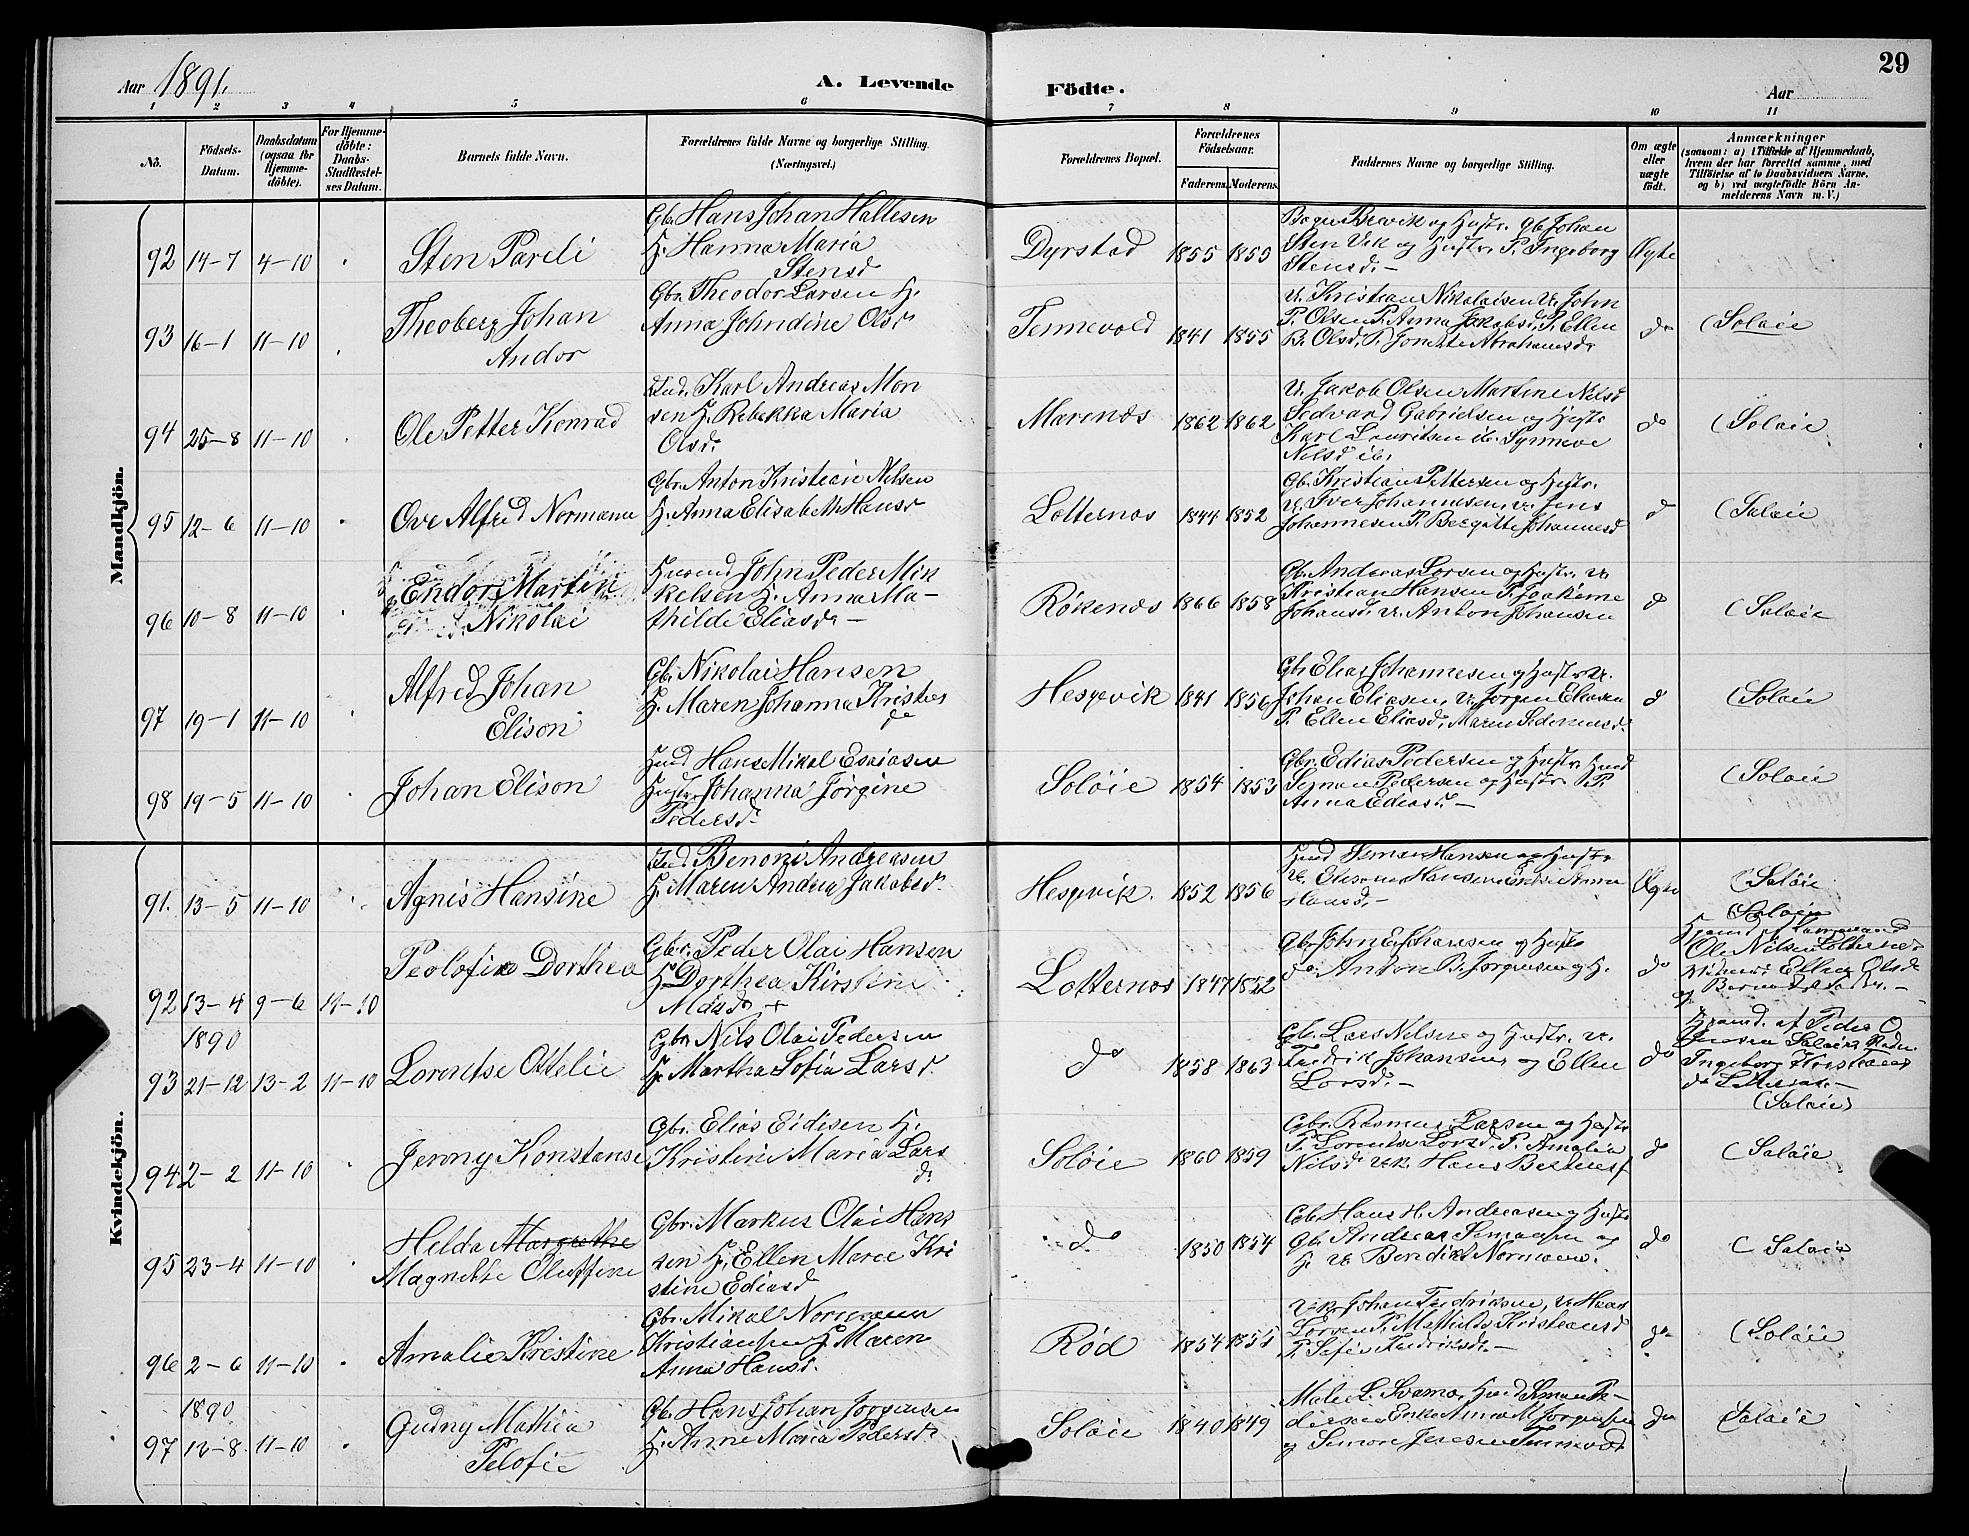 Aar 1891.
A. Levende Födte.
Aar
29
1 2 3 4 5 6 7 8 9 10 11
No.
Födsels-Datum.
Daabsdatum (ogsaa for Hjemmedöbte).
For Hjemmedöbte: Daabs-Stadfæstelses Datum.
Barnets fulde Navn.
Forældrenes fulde Navne og borgerlige Stilling. (Næringsvei.)
Forældrenes Bopæl.
Forældrenes Födselsaar.
Faderens. Moderens.
Faddernes Navne og borgerlige Stilling.
Om ægte eller uægte födt.
Anmærkninger
(saasom: a) i Tilfælde af Hjemmedaab,
hvem der har forrettet samme, med
Tilföielse af to Daabsvidners Navne,
og b) ved uægtefödte Börn An-
melderens Navn m. V.)
Mandkjön.
92 14-7 4-10
Sten Pareli
Gbr. Hans Johan Hallesen
H. Hanna Maria
Stensd
Dyrstad 1855 1855
Brevik og Hustr. Gb. Johan
Sten Vik og Hustr. P. Ingeborg
Stensd.
Ægte
93 16-1 11-10
Theoberg Johan
Andor
Gbr. Theodor Larsen H.
Anna Johndine Olsd
Tennevold 1841 1855
U. Kristian Nikolaisen U. John
P. Olsen P. Anna Jakobsd, P. Ellen
B. Olsd, P. Jonette Abrahamsd.
do
(Soløie
94 25-8 11-10
Ole Petter Konrad
Ind. Karl Andreas Mon
sen H. Rebekka Maria
Olsd.
Marenæs 1862 1862
U. Jakob Olsen Martine Nilsd
Sedvard Gabrielsen og Hustr
Karl Lauritsen ib. Synneve
Nilsd ib.
do
(Soløie
95 12-6 11-10
Ove Alfred Normann
Gbr. Anton Kristian Nilsen
H. Anna Elisabeth Hansd
Lotternæs 1844 1852
Gb. Kristian Pettersen og Hustr.
U. Iver Johannesen, U. Jens
Johannesen P. Bergitte Johannesd
d
(Soløie
96 10-8 11-10
Endor Martin
Nikolai
Husmd John Peder Mik
kelsen H. Anna Ma-
thilde Eliasd.
Røkenæs 1866 1858
Gb. Andreas Larsen og Hustr. U.
Kristian Hansen P. Joakime
Johansd. U. Anton Johansen
d
(Soløie
97 19-1 11-10
Alfred Johan
Elison
Gbr. Nikolai Hansen
H. Maren Johanna Kristens
d
Hesjevik 1841 1856
Gbr. Elias Johannesen og Hustr U.
Johan Eliasen, U. Jørgen Eliasen
P. Ellen Eliasd, Maren
d
(Soløie
98 19-5 11-10
Johan Elison
Hmd Hans Mikal Esaiasen
Hustr. Johanna Jørgine
Pedersd.
Soløie 1854 1853
Gbr. Edias Pedersen og Hustr. Hmd
Simon Pedersen og Hustr. P.
Anna Ediasd.
(Soløie
Kvindekjön.
91. 13-5 11-10
Agnis Hansine
Ind. Benoni Andreasen
H. Maren Andrea Jakobsd.
Hesjevik. 1852 1856
Hmd Simon Hansen og Hustr
U. Hansen Enke Anna
Hansd.
Ægte
(Soløie
92 13-4 9-6 11-10
Peolofine Dorthea
Gbr. Peder Olai Hansen
H. Dorthea Kirstine
Lotternæs 1847 1852
Gb. John E. Johansen og Hustr
do Anton B. Jørgensen og H.
do
(Soløie
Hjemd. af
Ole Nilsen Lotternæs
Ellen Olsd
og
1890
93 21-12 13-2 11-10
Lorentse Ottelie
Gbr. Nils Olai Pedersen
H. Martha Sofia Larsd.
do 1858 1863
Gb. Lars Nilsen og Hustr. U.
Fredrik Johansen og Ellen
Larsd.
do
Hjemd. af Peder O.
Soløie
Ingeborg Kristians
(Soløie)
94 2-2 11-10
Jenny Konstanse
Gbr. Elias Eidisen H.
Kristine Maria Lars
d.
Soløie 1860 1859
Gbr. Rasmus Larsen og Hustr
P. Lorentse Larsd. P. Amalia
Nilsd. U.K. Hans
d
(Soløie
95 23-4 11-10
Helda Margrethe
Magnette Oluffine
Gbr. Markus Olai Hans
sen H. Ellen Maree Kri
stine Ediasd
do 1850 1854
Gb. Hans H. Andreasen og Hustr
Gb. Andreas Simonsen og
H. U. Bendikt Normann.
do
(Soløie
96 2-6 11-10
Amalie Kristine
Gbr. Mikal Normann
Kristiansen H. Maren
Anna Hansd.
Rød 1854 1855
U.K. Johan Fredriksen, U. Hans
Larsen P. Mathilde Kristiansd
P. Sofie Fredriksd.
do
(Soløie
1890
97 12-8 11-10
Gudny Mathea
Pelofie
Gb. Hans Johan Jørgensen
H. Anne Maria Pedersd.
Soløie 1840 1849
L. Svamo, Hmd Simon Pe-
dersen Enke Anna M. Jørgensen
og Simon Jensen Tennevold
do
(Soløie